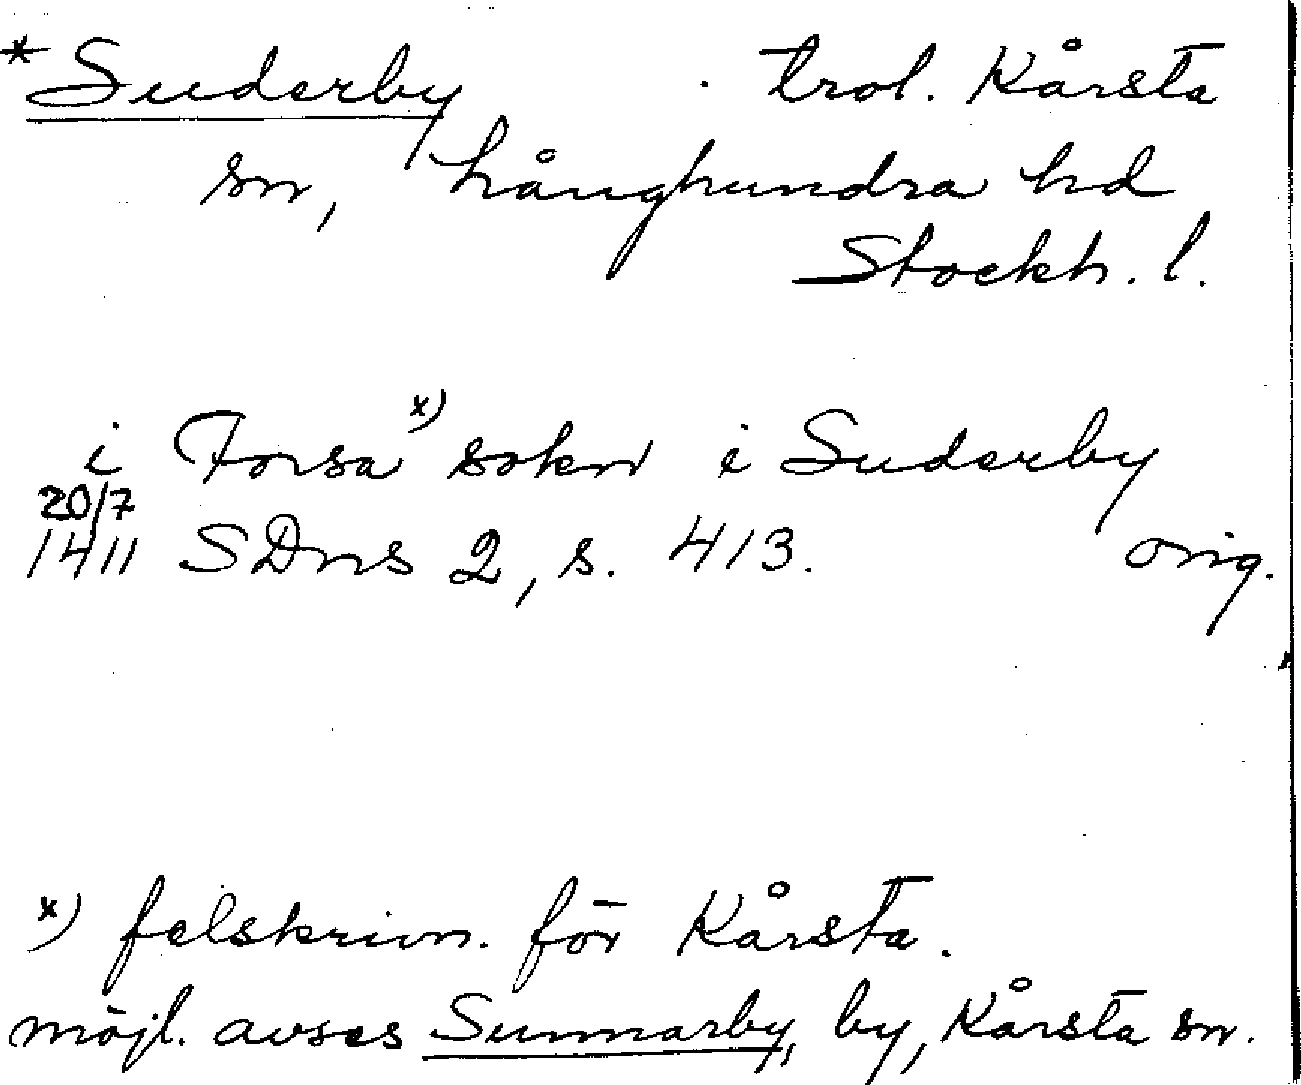 *Suderby . trol. Kårsta
sn, Långhundra hd
Stockh. l.
i Forsa x) sokn i Suderby
20/7
1411 SDns 2, s. 413. orig.
x) felskrivn. för Kårsta.
möjl. avses Sunnarby, by, Kårsta sn.